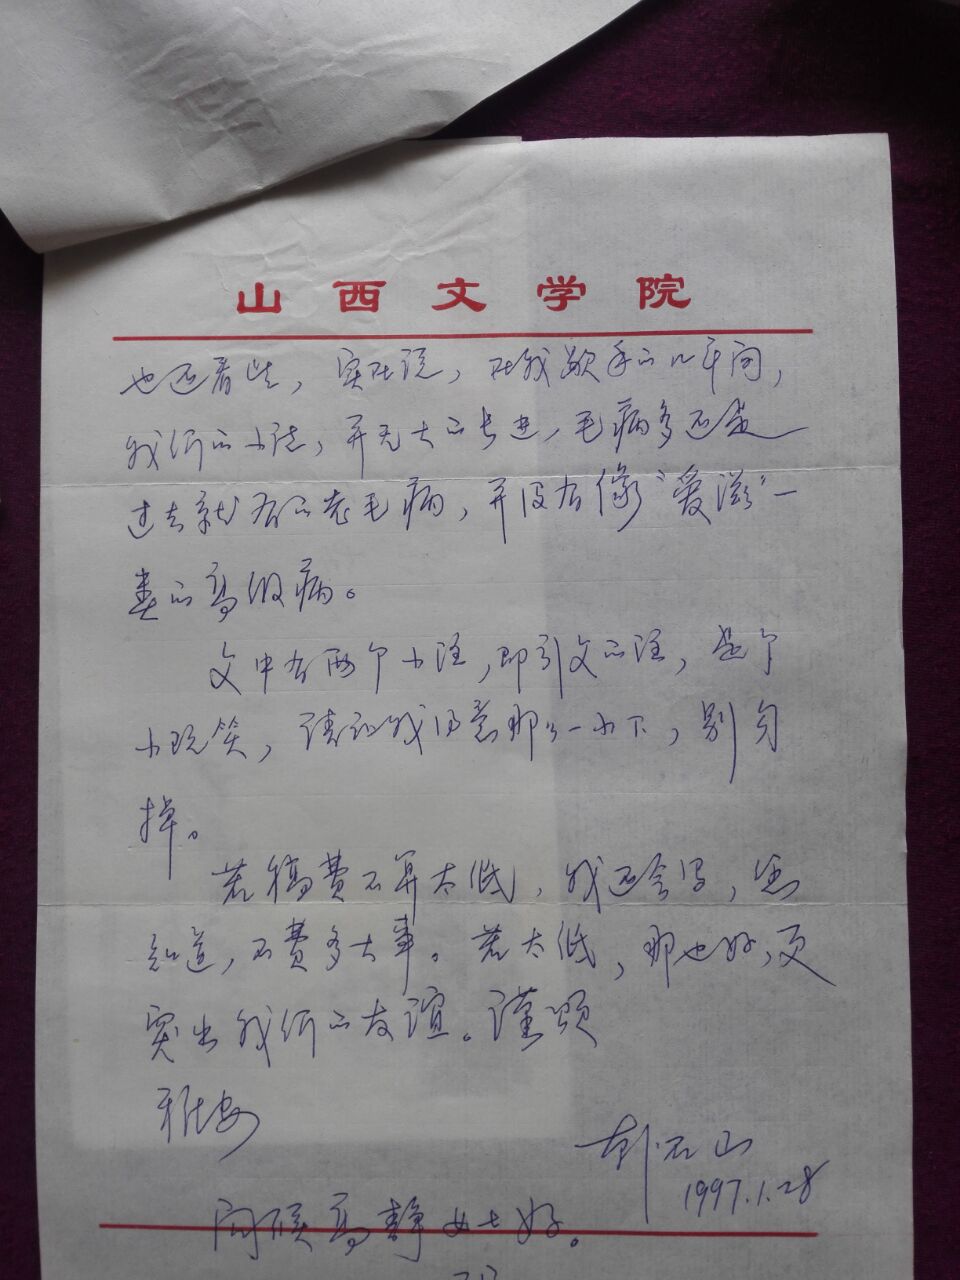 山西文学院
也还看些，实在说，在我歇手的几年间，
我们的小说，并无大的长进，毛病多还是
过去就有的老毛病，并没有像“爱滋”一
类的高级病。
文中有两个小注，即引文的注，是个
小玩笑，请让我得意那么一小下，别勾
掉。
若稿费不算太低，我还会写，您
知道，不费多大事。若太低，那也好，更
突出我们的友谊。谨颂
雅安
韩石山
1997.1.28
问候高静女士好。